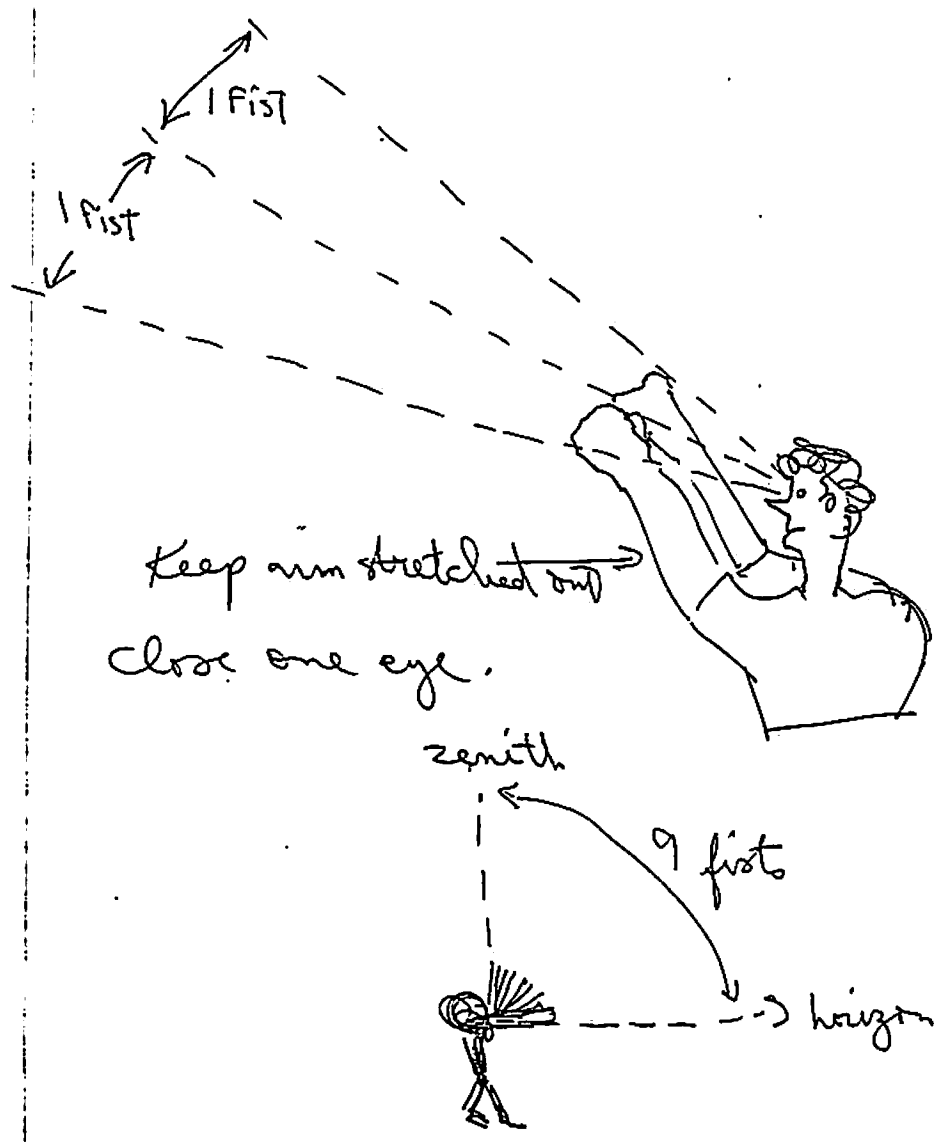 1 Fist
1 fist
Keep arm stretched out
close one eye.
zenith
9 fists
horizon